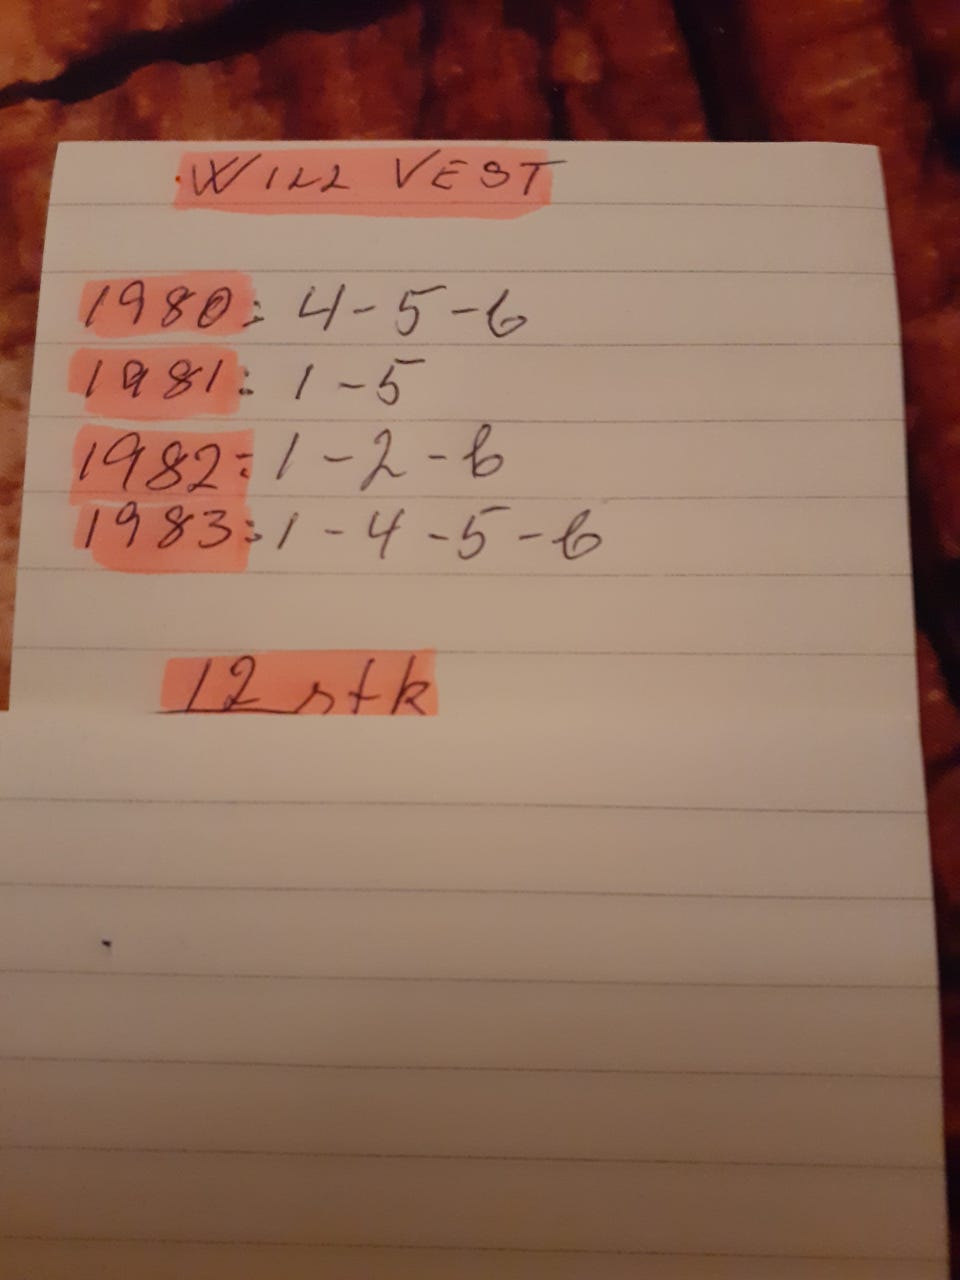 WILL VEST
1980: 4-5-6
1981: 1-5
1982: 1-2-6
1983: 1-4-5-6
12 stk